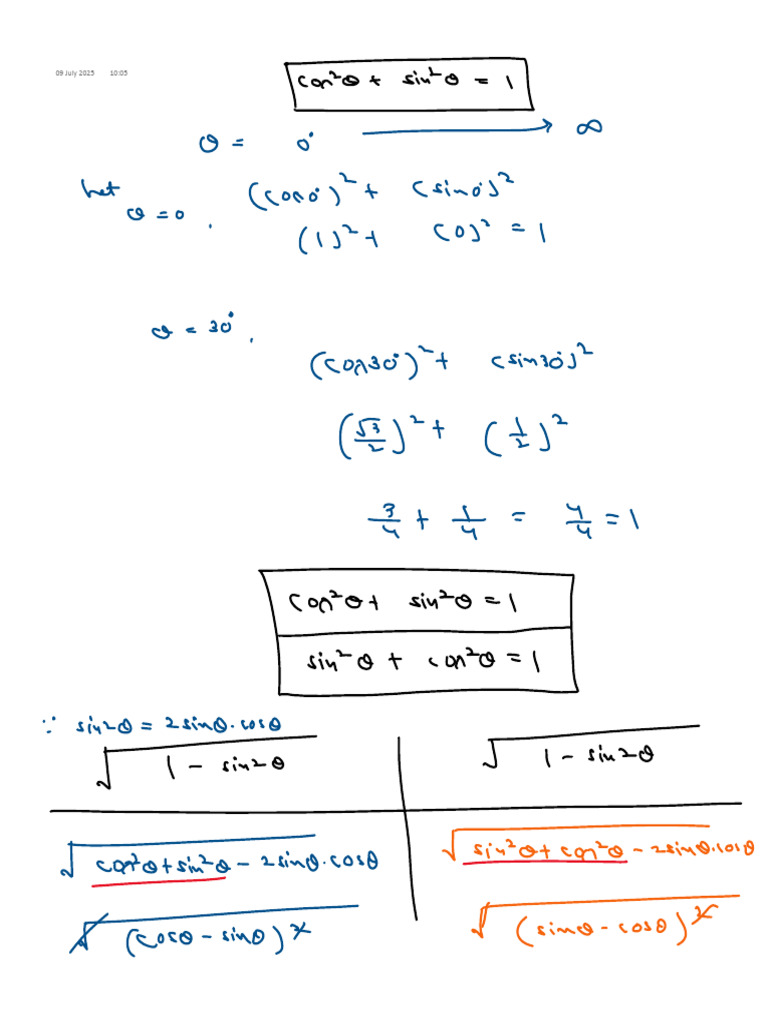 09 July 2025 10:05
cos²θ + sin²θ = 1
θ = 0° ⟶ ∞
Let θ = 0, (cos0°)² + (sin0°)²
(1)² + (0)² = 1
θ = 30°,
(cos30°)² + (sin30°)²
(√3/2)² + (1/2)²
3/4 + 1/4 = 4/4 = 1
cos²θ + sin²θ = 1
sin²θ + cos²θ = 1
∵ sin2θ = 2sinθ·cosθ
√(1 - sin2θ)
√(1 - sin2θ)
√(cos²θ + sin²θ - 2sinθ·cosθ)
√(sin²θ + cos²θ - 2sinθ·cosθ)
√(cosθ - sinθ)²
√(sinθ - cosθ)²